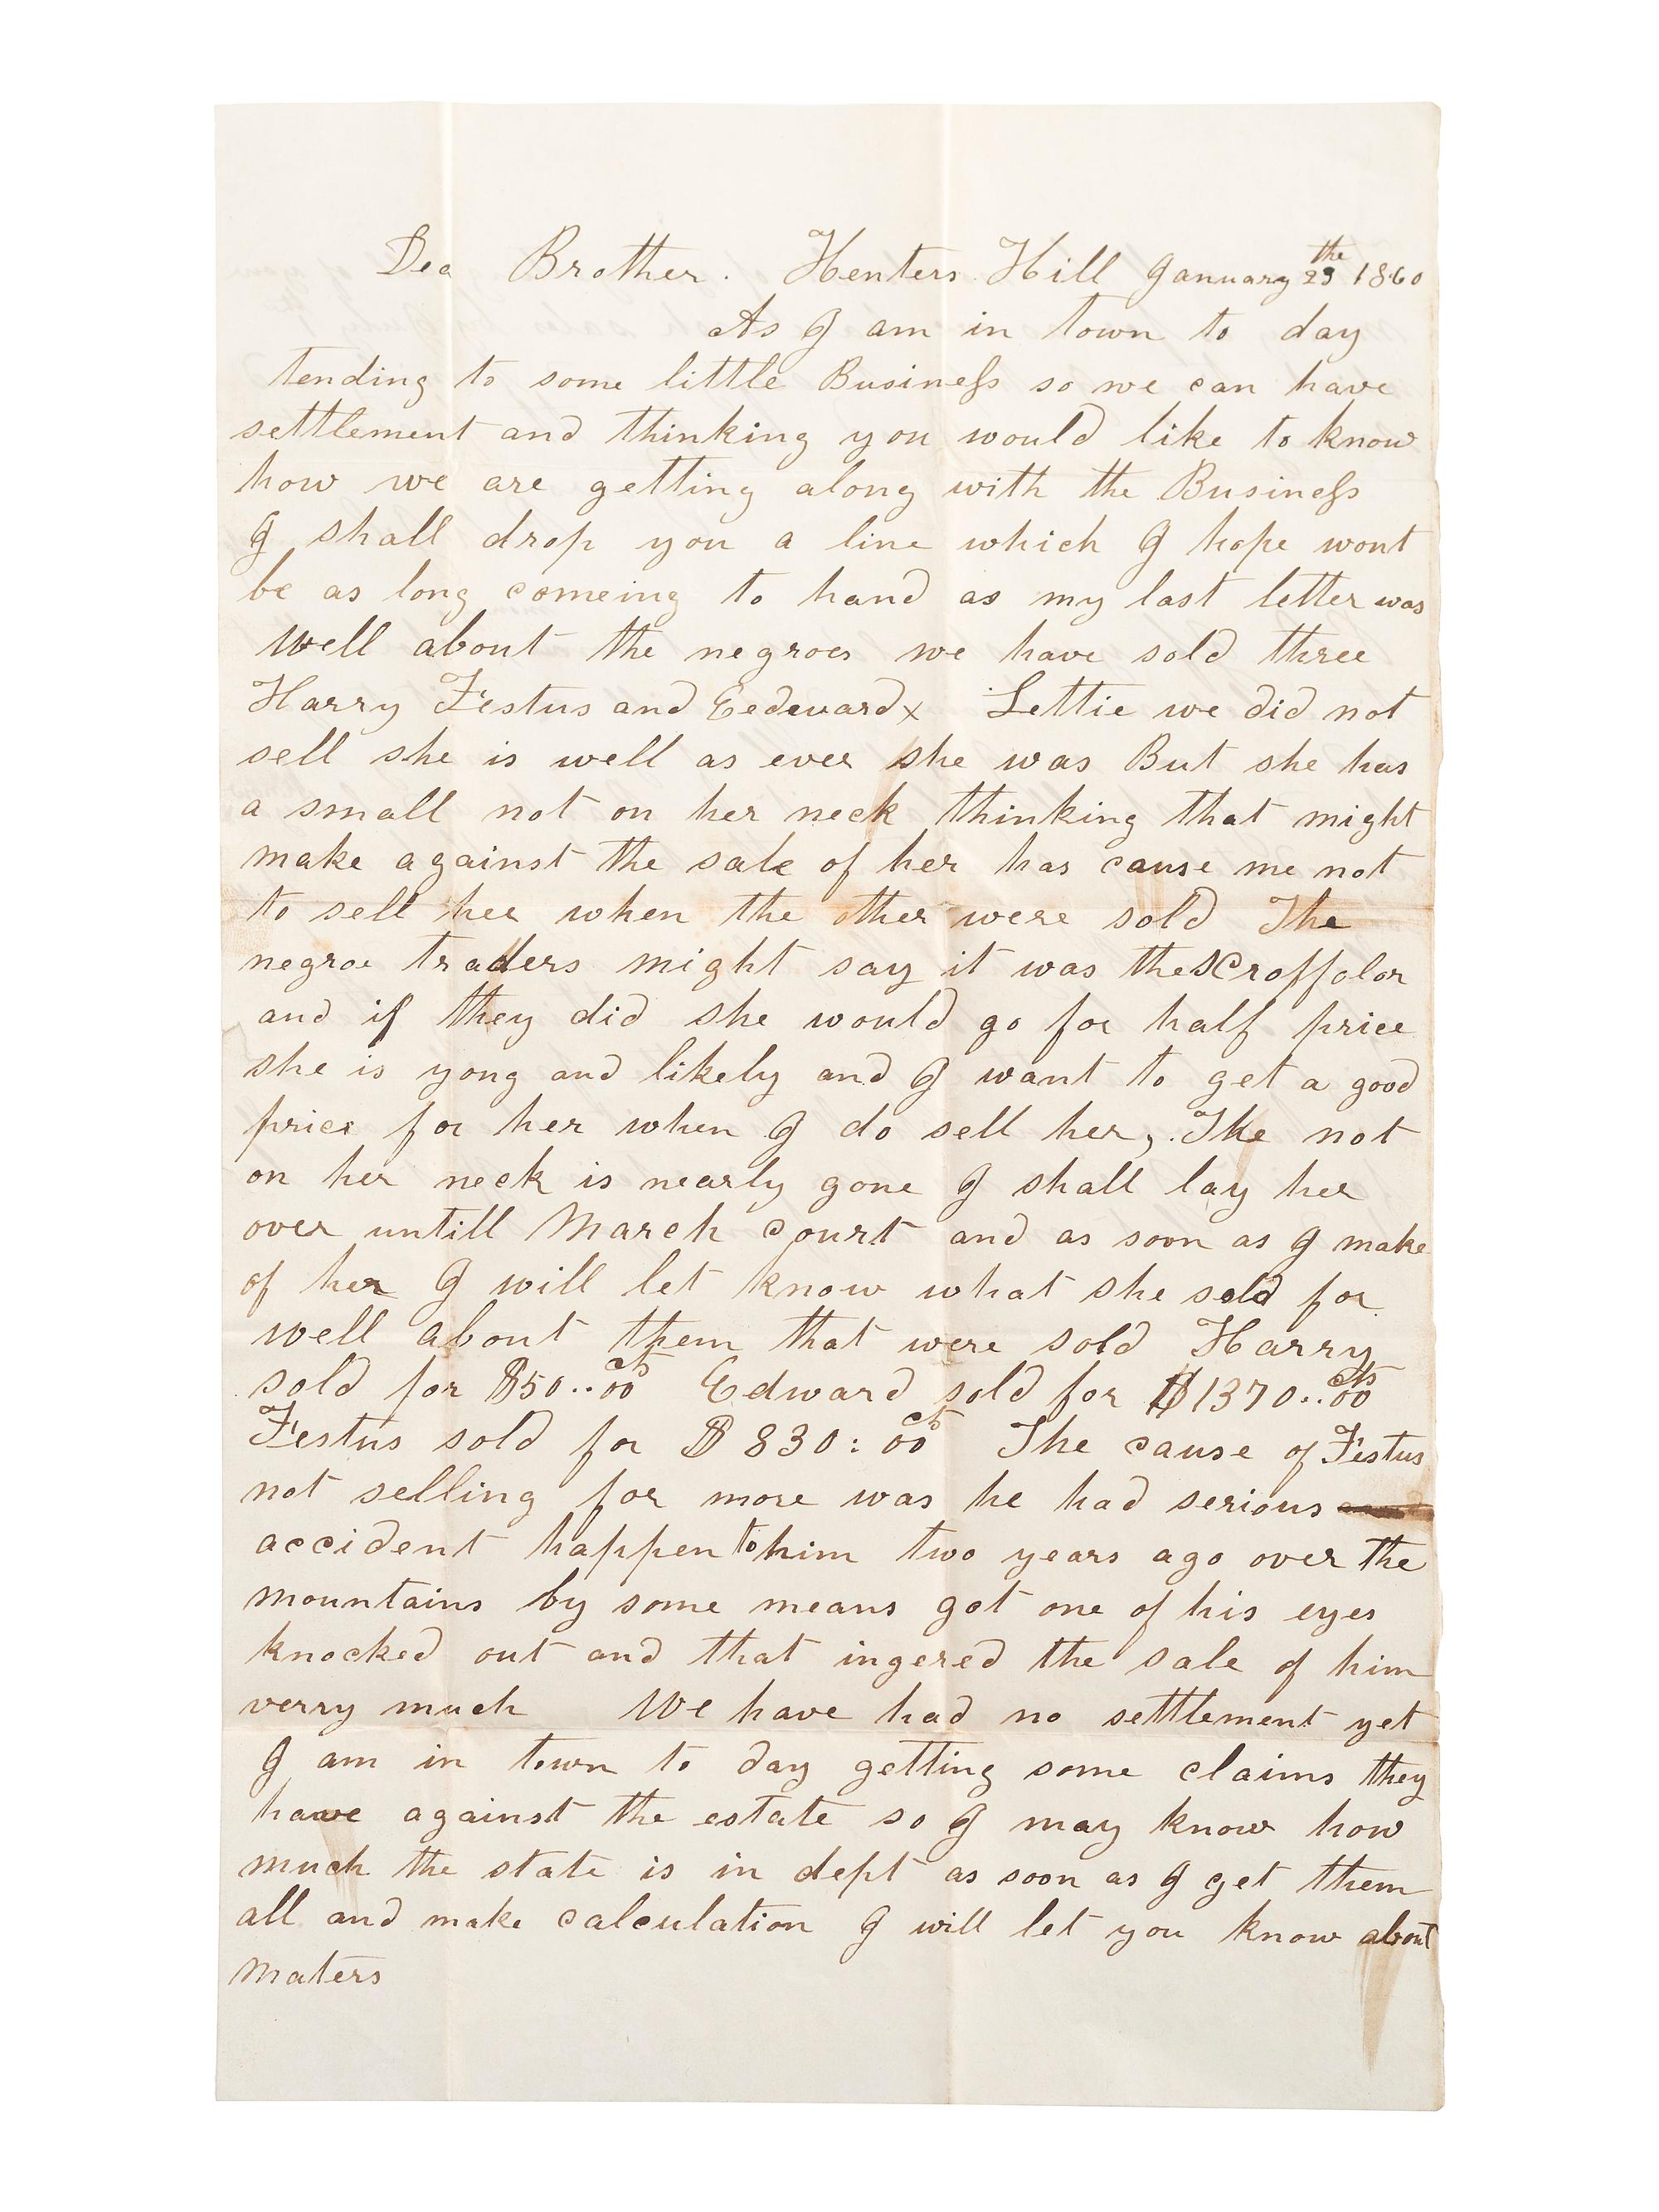 Dea Brother. Henters Hill January 29 the 1860
As I am in town to day
tending to some little Business so we can have
settlement and thinking you would like to know
how we are getting along with the Business
I shall drop you a line which I hope wont
be as long comeing to hand as my last letter was
Well about the negroes we have sold three
Harry Festus and Eedward x Lettie we did not
sell she is well as ever she was But she has
a small not on her neck thinking that might
make against the sale of her has cause me not
to sell her when the other were sold The
negroe traders might say it was the scroffolor
and if they did she would go for half price
she is yong and likely and I want to get a good
price for her when I do sell her, The not
on her neck is nearly gone I shall lay her
over untill March court and as soon as I make
of her I will let know what she sold for
well about them that were sold Harry
sold for $50..00 cts Edward sold for $1370..00 cts
Festus sold for $830:00 cts The cause of Festus
not selling for more was he had serious
accident happen to him two years ago over the
mountains by some means got one of his eyes
knocked out and that ingered the sale of him
verry much We have had no settlement yet
I am in town to day getting some claims they
have against the estate so I may know how
much the state is in dept as soon as I get them
all and make calculation I will let you know about
maters